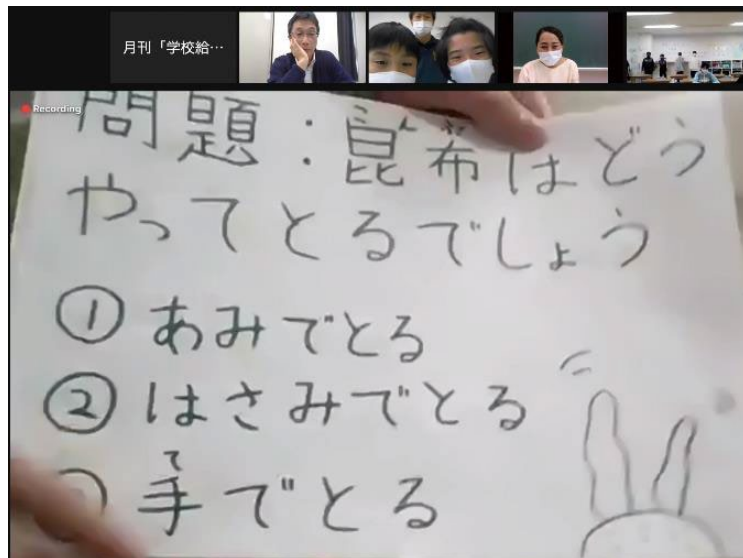 月刊「学校給…
Recording
問題:昆布はどう
やってとるでしょう
①あみでとる
②はさみでとる
手でとる